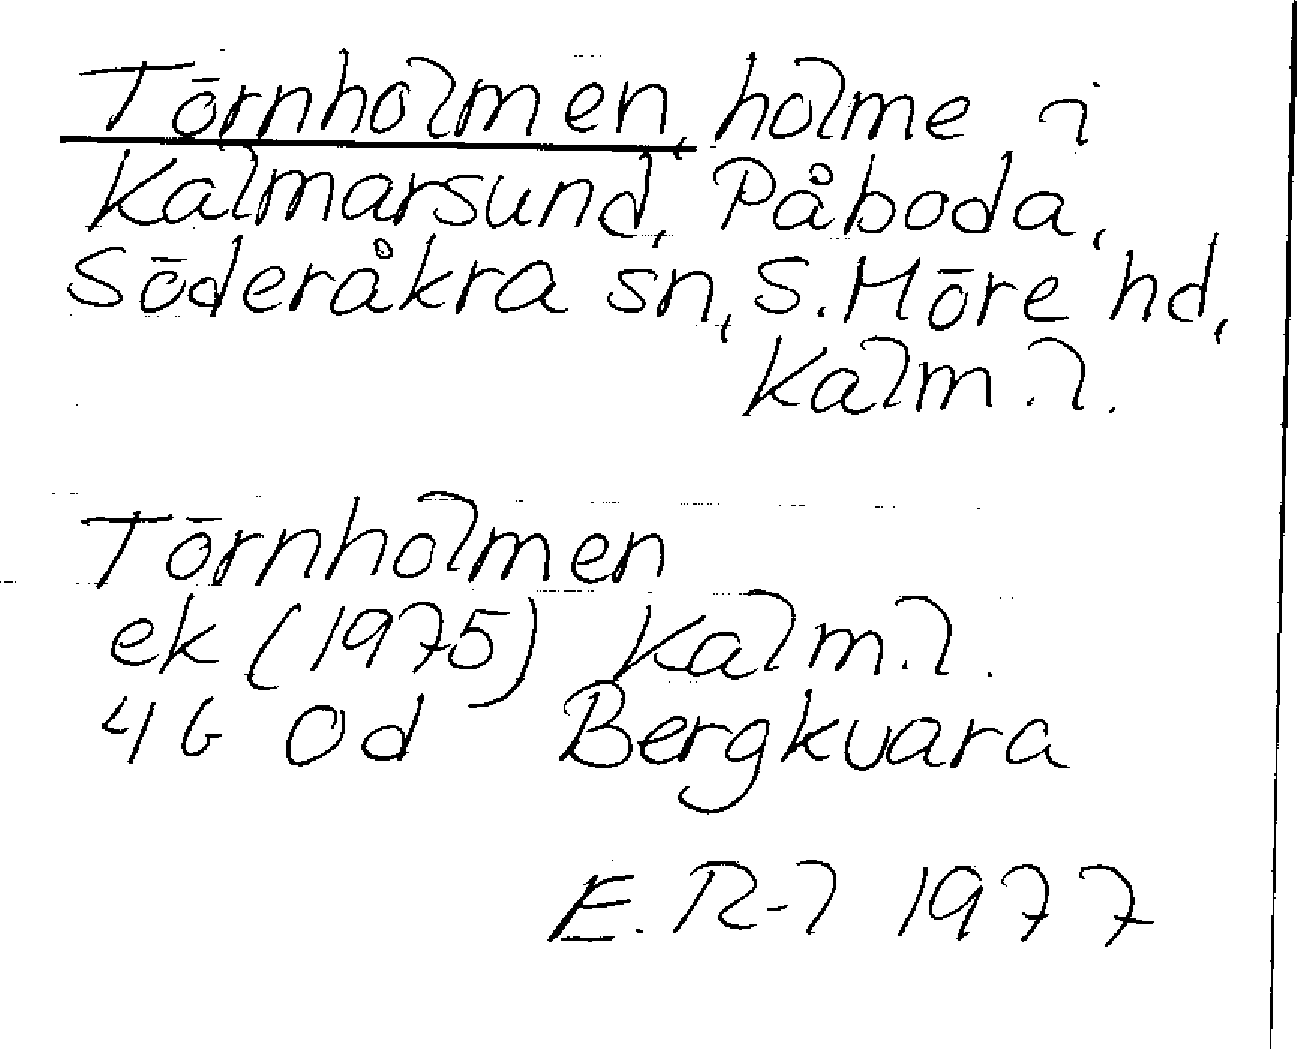 Törnholmen, holme i
Kalmarsund, Påboda,
Söderåkra sn, S. Möre hd,
Kalm. l.
Törnholmen
ek (1975) Kalm. l.
4G 0d Bergkvara
E. R-l 1977